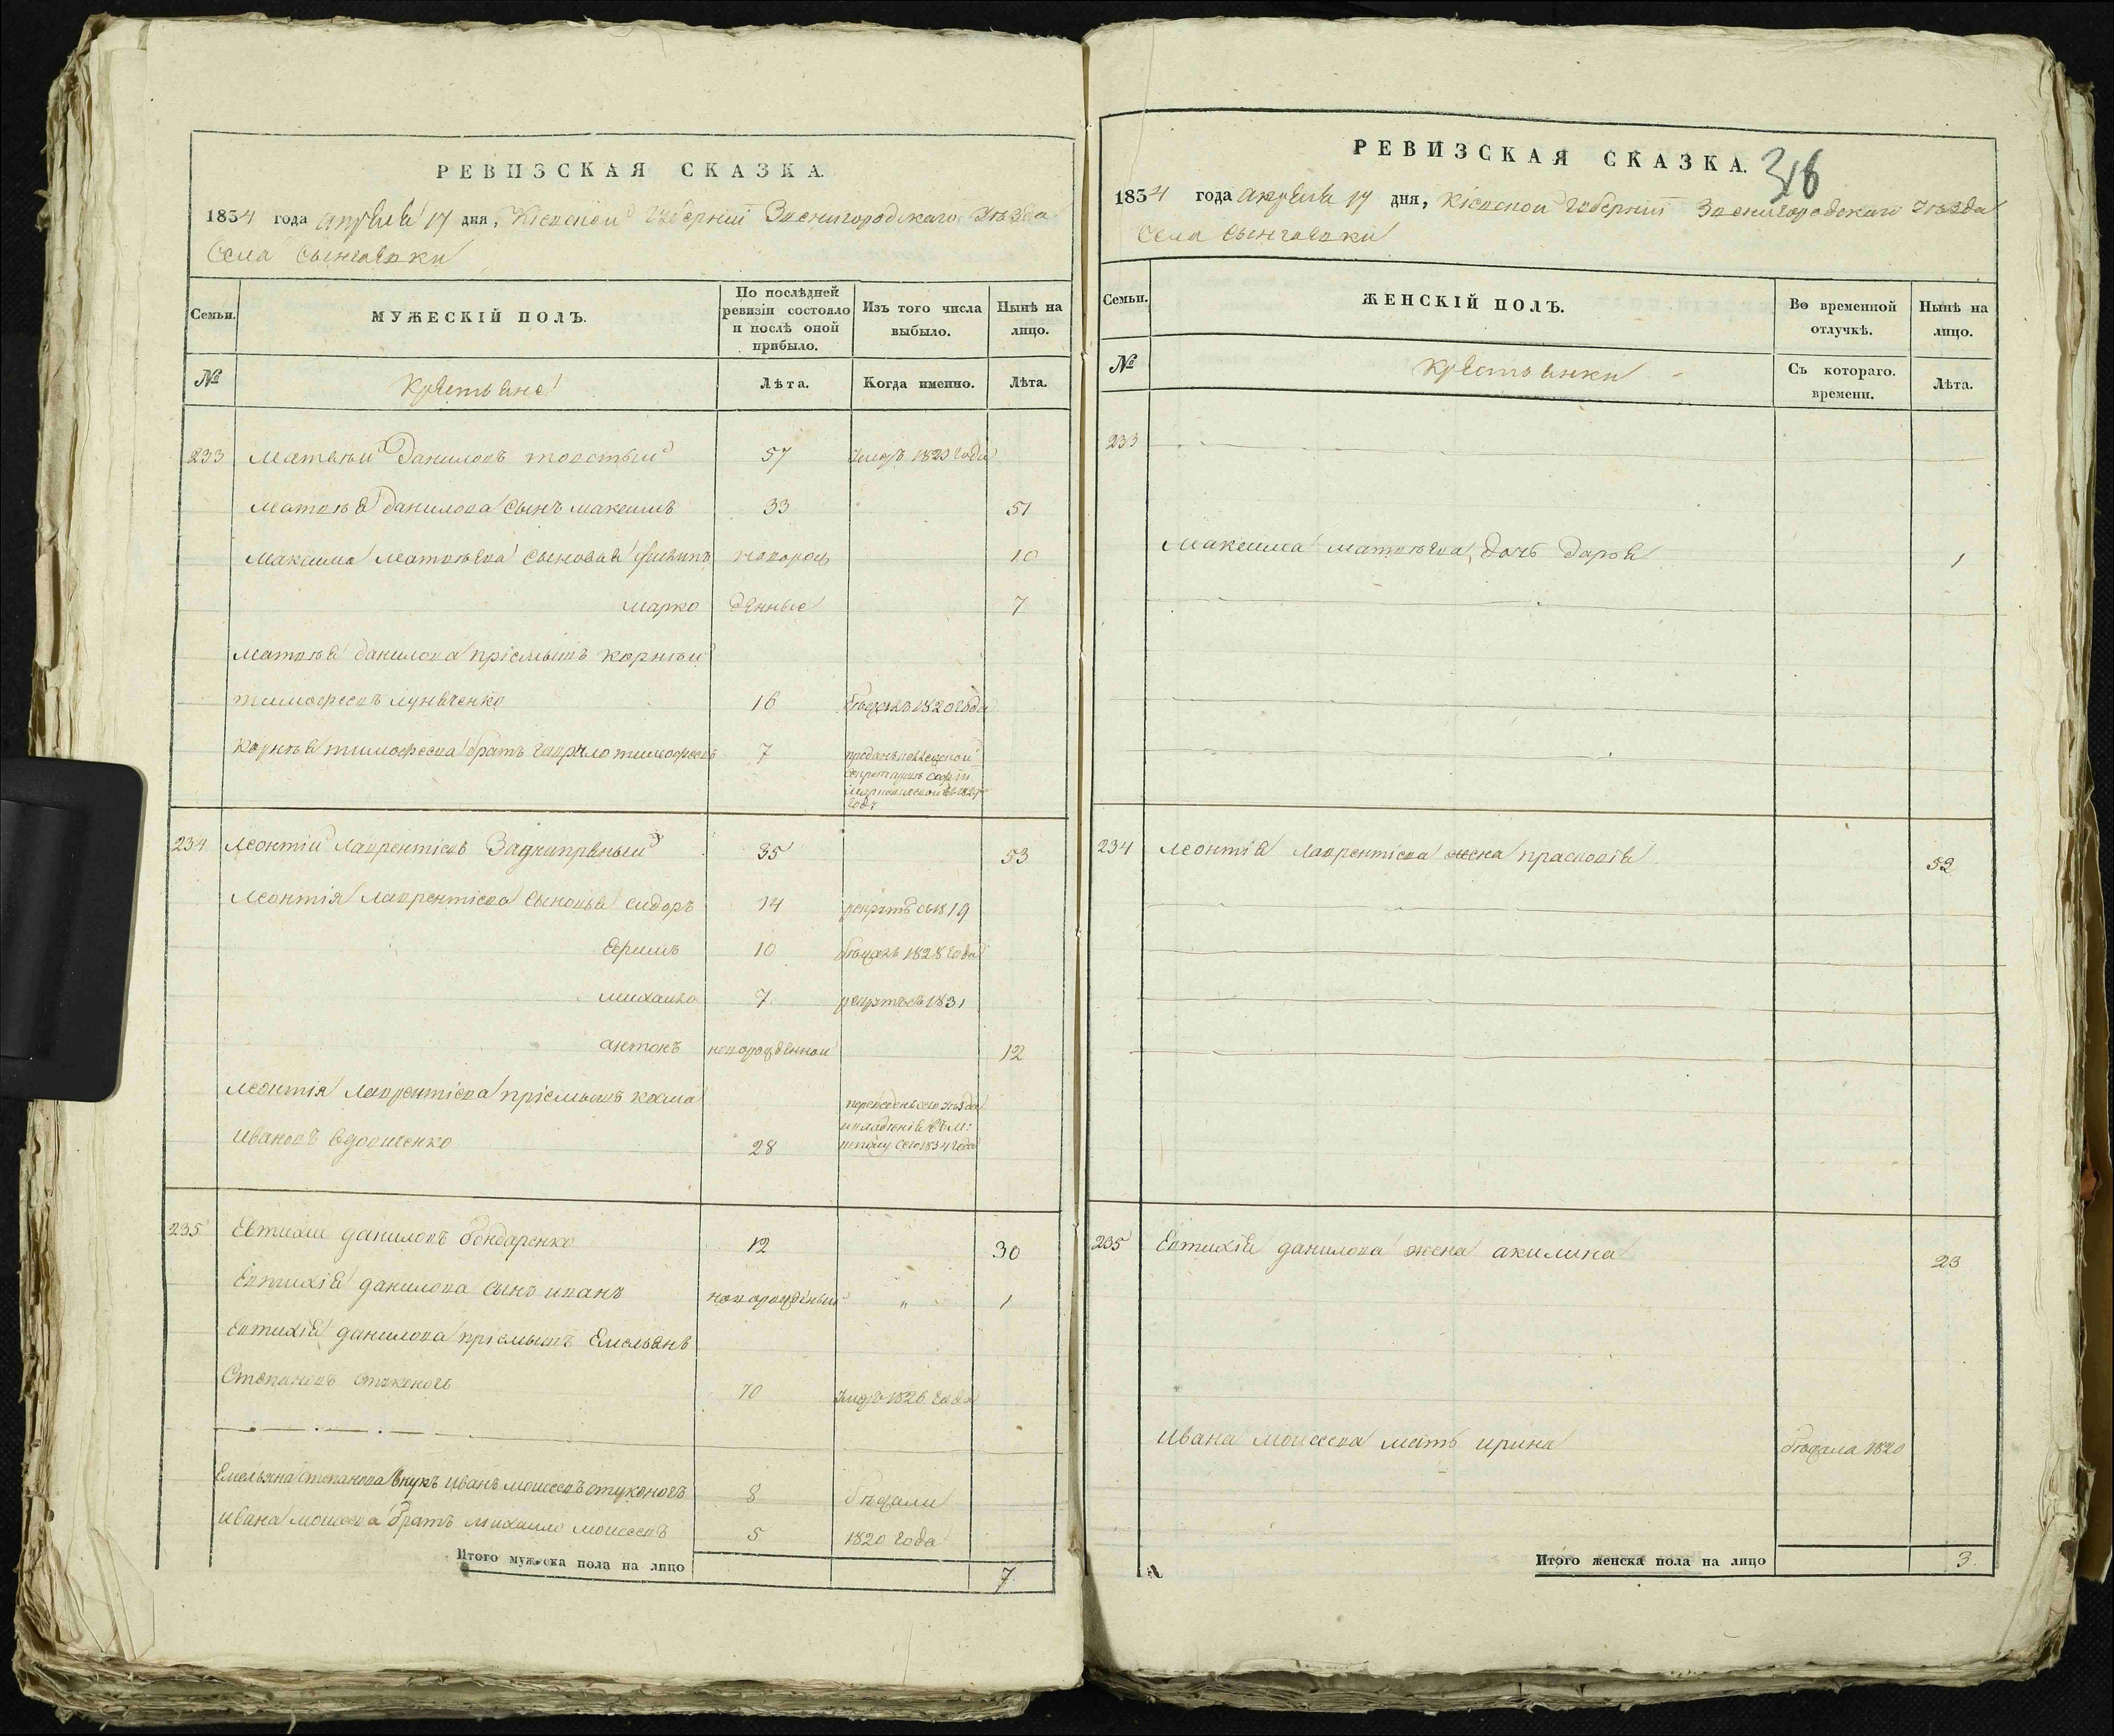 РЕВИЗСКАЯ СКАЗКА.
1834 года апреля 17 дня, Кіевской Губерніи Звенигородскаго Уѣзда
Села
Семьи.
МУЖЕСКІЙ ПОЛЪ.
По послѣдней ревизіи состояло и послѣ оной прибыло.
Изъ того числа выбыло.
Нынѣ на лицо.
№
Крестьяне
Лѣта.
Когда именно.
Лѣта.
233 Матвѣй Даниловъ толстый 57 умеръ 1823 года
Матвѣя Данилова сынъ максимъ 33 51
Максима Матвѣева сыновья филипъ новорож 10
марко денные 7
Матвѣя Данилова пріемышъ корнѣй
тимофеевъ 16 бѣжалъ 1820 года
Корнѣя тимофеева братъ гаврило тимофеевъ 7 проданъ
въ 182
году
234 Леонтій Лаврентіевъ 35 53
Леонтія Лаврентіева сыновья сидоръ 14 рекрутъ съ 1819
Ефимъ 10 бѣжалъ 1828 года
михайло 7 рекрутъ съ 1831
антонъ новорожденной 12
Леонтія Лаврентіева пріемышъ козма
ивановъ вдовиченко 28 переведенъ сего уѣзда
сего 1834 года
235 Евтихій даниловъ бондаренко 12 30
Евтихія данилова сынъ иванъ новорожденый " 1
Евтихія данилова пріемышъ Емельянъ
Степановъ стуконогъ 70 умеръ 1826 года
Емельяна степанова внукъ иванъ моисеевъ стуконогъ 8 бѣжали
ивана моисеева братъ михайло моисеевъ 5 1820 года
Итого мужеска пола на лицо 7
РЕВИЗСКАЯ СКАЗКА.
316
1834 года апреля 17 дня, Кіевской Губерніи Звенигородскаго Уѣзда
Села
Семьи.
ЖЕНСКІЙ ПОЛЪ.
Во временной отлучкѣ.
Нынѣ на лицо.
№
Крестьянки
Съ котораго. времени.
Лѣта.
233
Максима матвѣева дочь дарья 1
234 Леонтія лаврентіева жена прасковія 52
235 Евтихія данилова жена акилина 23
Ивана Моисеева мать ирина бѣжала 1820
Итого женска пола на лицо 3.